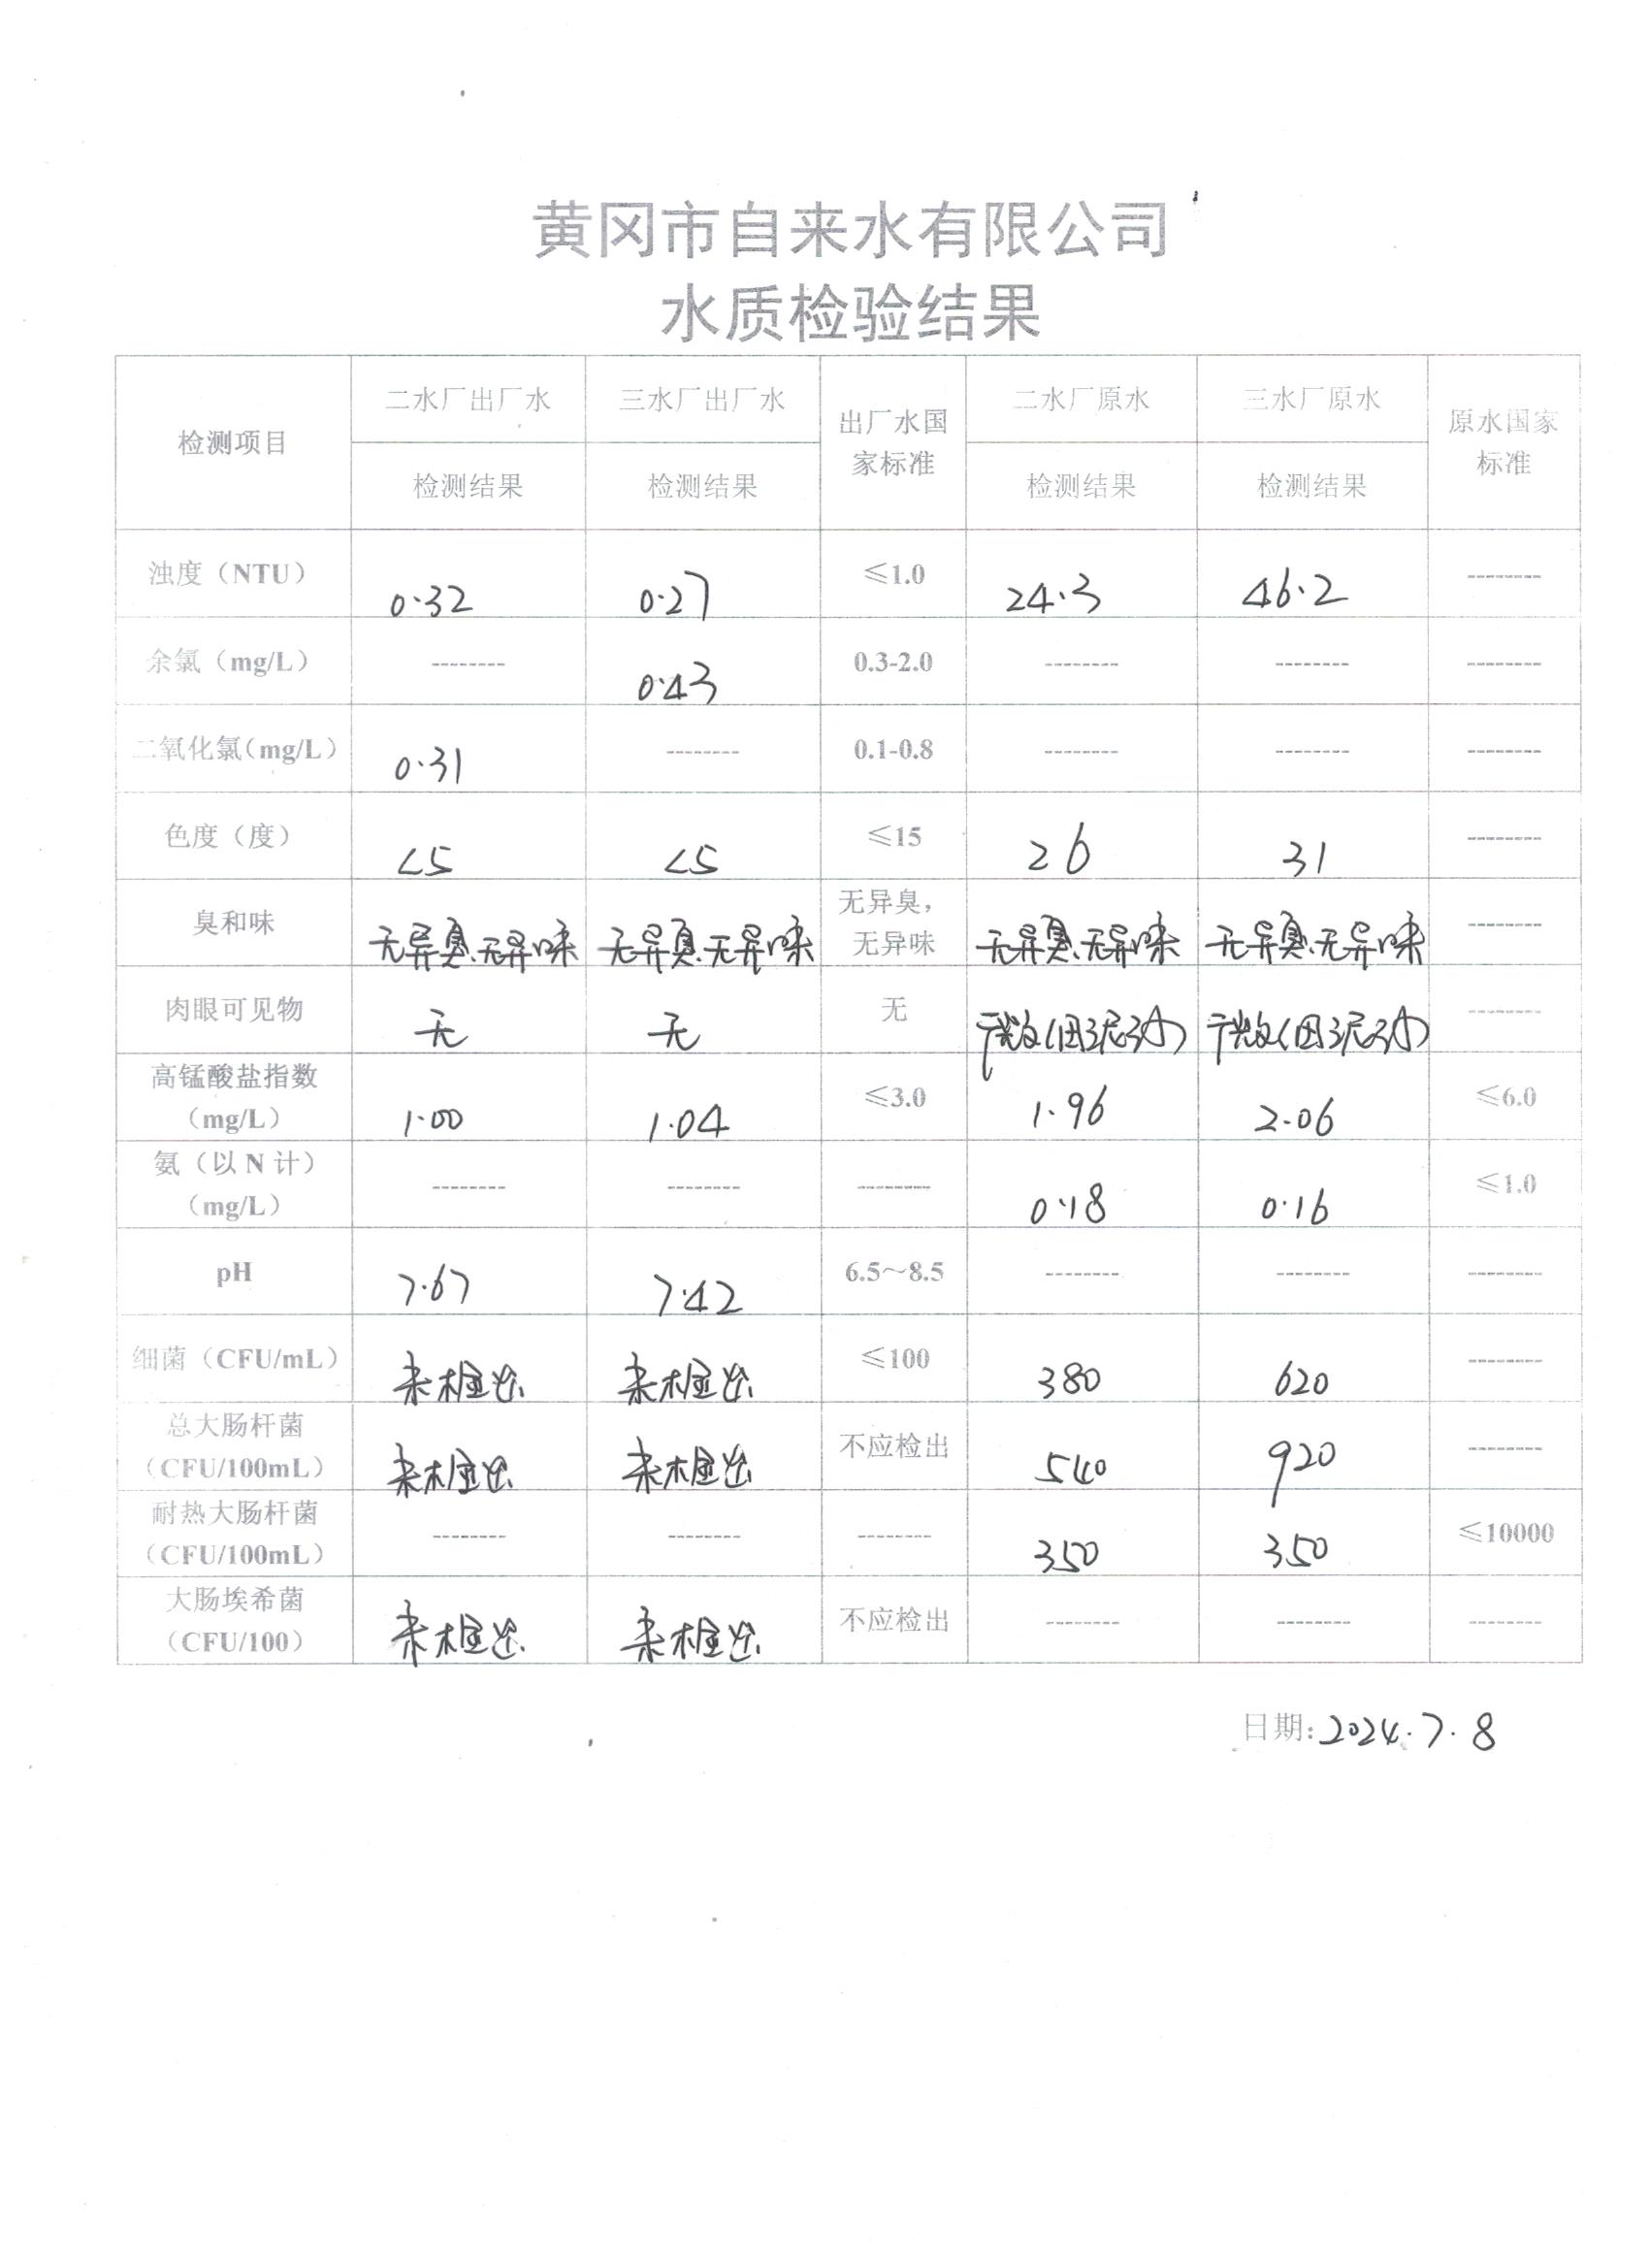 黄冈市自来水有限公司
水质检验结果
检测项目 二水厂出厂水 三水厂出厂水 出厂水国家标准 二水厂原水 三水厂原水 原水国家标准
检测结果 检测结果 检测结果 检测结果
浊度（NTU） 0.32 0.27 ≤1.0 24.3 46.2 --------
余氯（mg/L） -------- 0.43 0.3-2.0 -------- -------- --------
二氧化氯（mg/L） 0.31 -------- 0.1-0.8 -------- -------- --------
色度（度） <5 <5 ≤15 26 31 --------
臭和味 无异臭.无异味 无异臭.无异味 无异臭，无异味 无异臭.无异味 无异臭.无异味 --------
肉眼可见物 无 无 无 (因泥沙) (因泥沙) --------
高锰酸盐指数（mg/L） 1.00 1.04 ≤3.0 1.96 2.06 ≤6.0
氨（以N计）（mg/L） -------- -------- -------- 0.18 0.16 ≤1.0
pH 7.67 7.42 6.5～8.5 -------- -------- --------
细菌（CFU/mL） 未检出 未检出 ≤100 380 620 --------
总大肠杆菌（CFU/100mL） 未检出 未检出 不应检出 540 920 --------
耐热大肠杆菌（CFU/100mL） -------- -------- -------- 350 350 ≤10000
大肠埃希菌（CFU/100） 未检出 未检出 不应检出 -------- -------- --------
日期: 2024.7.8